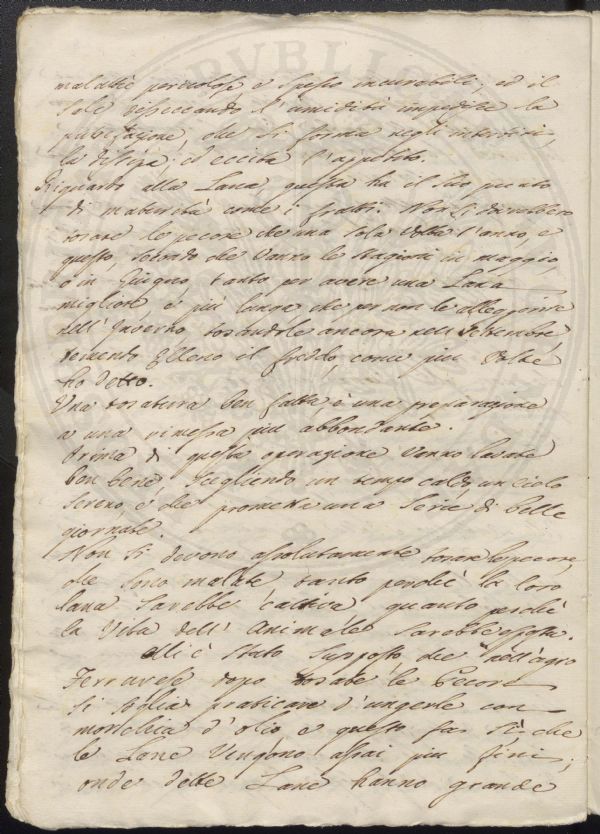 malatie pericolose e spesso incurabili, ed il
Sole disseccando l'umidità impedisce la
che si forma negli intestini,
la ed eccita l'appetito.
Riguardo alla Lana, questa ha il suo punto
di maturità come i frutti. Non si dovrebbero
tosare le pecore che una sola volta l'anno, e
questo, secondo che vanno le stagioni in maggio,
o in Giugno, tanto per avere una Lana
migliore, e più lunga che per non le alleggerire
nell'Inverno tosandole ancora nell Settembre
temendo Elleno il freddo, come più volte
ho detto.
Una tosatura ben fatta, è una preparazione
a una rimessa più abbondante.
Prima di questa operazione vanno lavate
ben bene, scegliendo un tempo caldo, un cielo
sereno, e che prometta una serie di belle
giornate.
Non si devono assolutamente tosare le pecore,
che sono malate tanto perchè la loro
lana sarebbe cattiva quanto perchè
la Vita dell'Animale sarebbe
Mi è stato supposto, che nell'agro
Ferrarese dopo tosate le Pecore
si soglia praticare d'ungerle con
morchia d'olio, e questo far sì che
le Lane vengono assai più fini,
onde dette Lane hanno grande